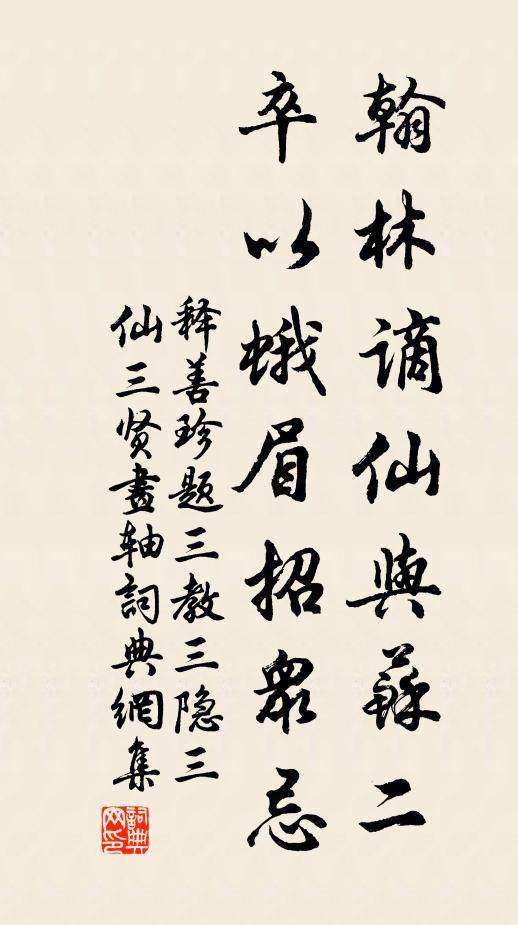 翰林謫仙與蘇二
卒以蛾眉招眾忌
释善珍题三教三隐三
仙三贤畫轴詞典網集
詞典网印